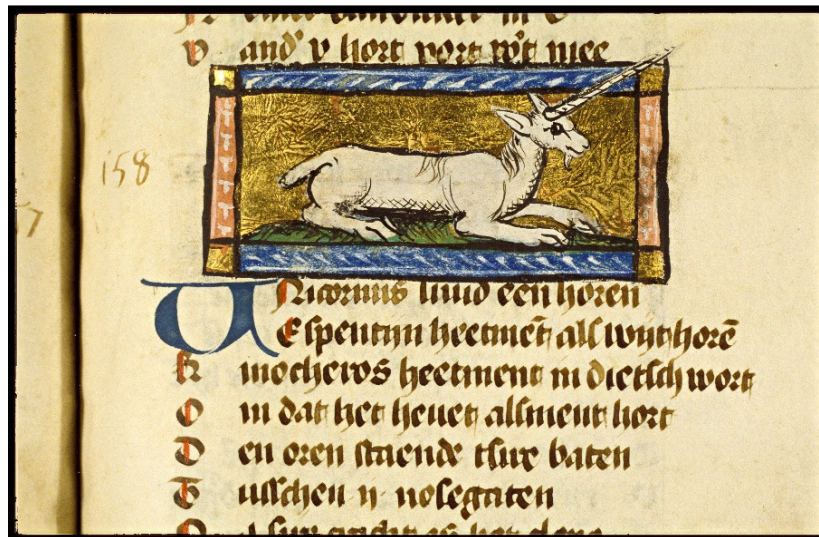 v and' v hort vort w't mee
158
Unicornus luud een horen
Espentijn heetmē als wijt horē
Rinocheros heetment in dietsch wort
Om dat het hevet alsment hort
Den oren staende tsire baten
Tusschen ij nosegaten